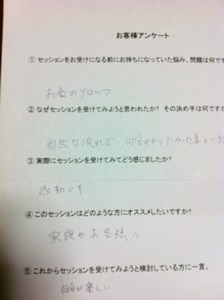 お客様アンケート
① セッションをお受けになる前にお持ちになっていた悩み、問題は何です
お金のブロック
② なぜセッションを受けてみようと思われたか? その決め手は何ですか
自然な流れで
③ 実際にセッションを受けてみてどう感じましたか?
感動です
④ このセッションはどのような方にオススメしたいですか?
家族やお客様へ
⑤ これからセッションを受けてみようと検討している方に一言。
自分が楽しい